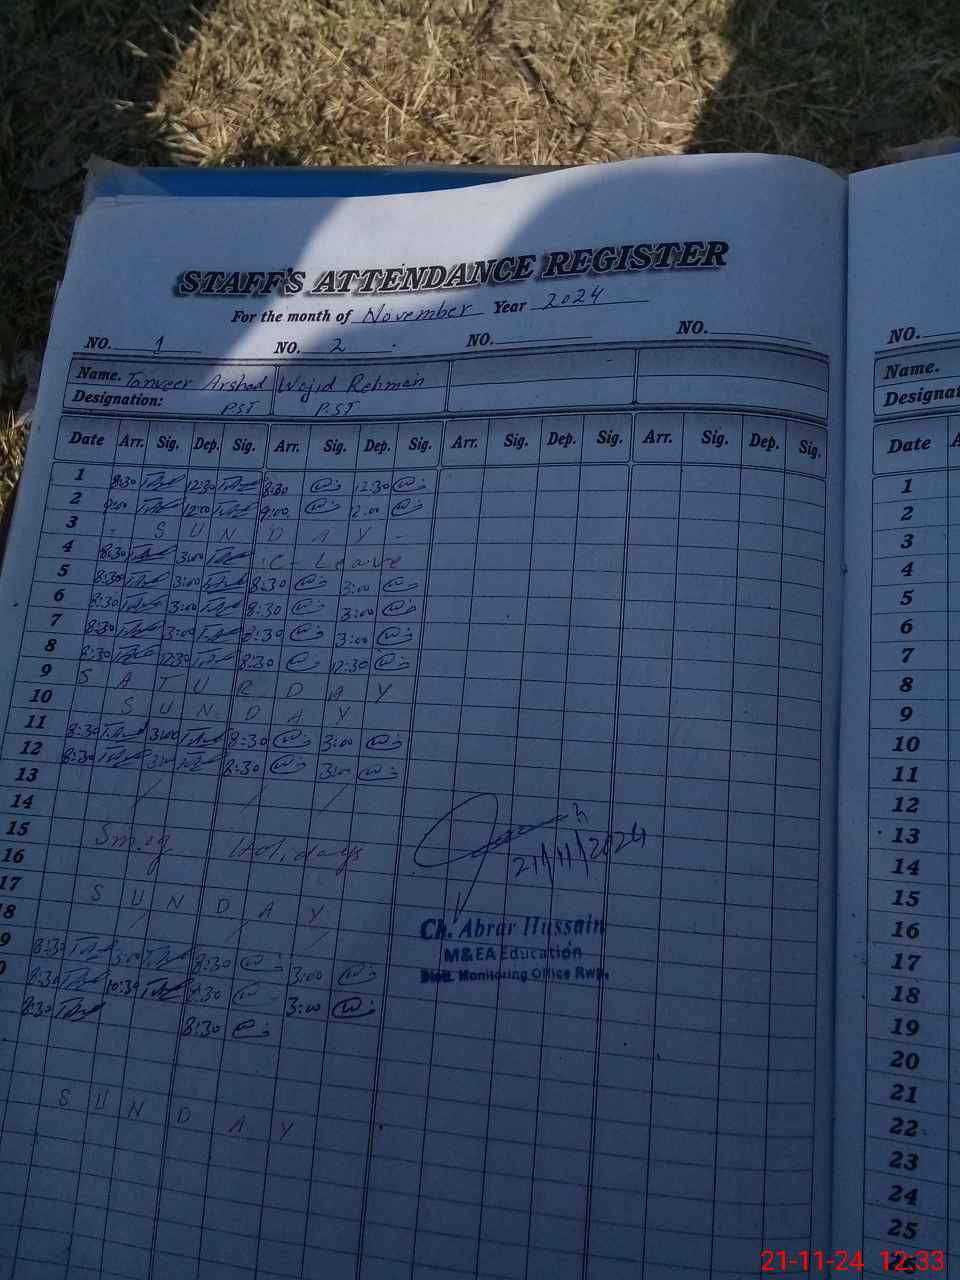 STAFF'S ATTENDANCE REGISTER
For the month of November Year 2024
NO. 1 NO. 2 NO. NO.
Name. Tanveer Arshad Wajid Rehman
Designation: P.ST P.ST
Date Arr. Sig. Dep. Sig. Arr. Sig. Dep. Sig. Arr. Sig. Dep. Sig. Arr. Sig. Dep. Sig.
1 8:30 12:30 8:30 12:30
2 9:00 12:00 9:00 12:00
3 SUNDAY
4 8:30 3:00 C- Leave
5 8:30 3:00 8:30 3:00
6 8:30 3:00 8:30 3:00
7 8:30 3:00 8:30 3:00
8 8:30 12:30 8:30 12:30
9 SATURDAY
10 SUNDAY
11 8:30 3:00 8:30 3:00
12 8:30 3:00 8:30 3:00
13
14
15 Smog Holidays
16
17 SUNDAY
18
9 8:30 3:00 8:30 3:00
0 8:30 10:30 8:30 3:00
8:30 8:30
SUNDAY
21/11/2024
Ch. Abrar Hussain
M&EA Education
Distt. Monitoring Office Rwp.
NO.
Name.
Designa
Date A
1
2
3
4
5
6
7
8
9
10
11
12
13
14
15
16
17
18
19
20
21
22
23
24
25
26
21-11-24 12:33